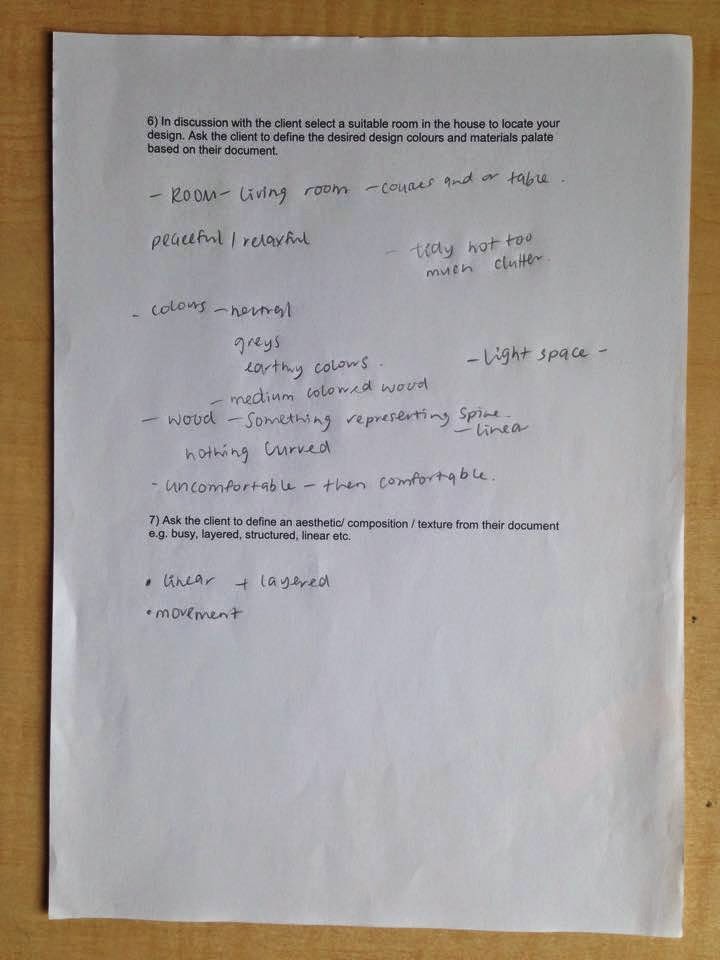 6) In discussion with the client select a suitable room in the house to locate your
design. Ask the client to define the desired design colours and materials palate
based on their document.
- ROOM - Living room - and or table.
peaceful / relaxful
- tidy not too
much clutter.
- colours - neutral
greys
earthy colours.
- Light space -
- medium coloured wood
- wood - something representing spine.
- linear
nothing curved
- uncomfortable - then comfortable.
7) Ask the client to define an aesthetic/ composition / texture from their document
e.g. busy, layered, structured, linear etc.
• linear + layered
• movement